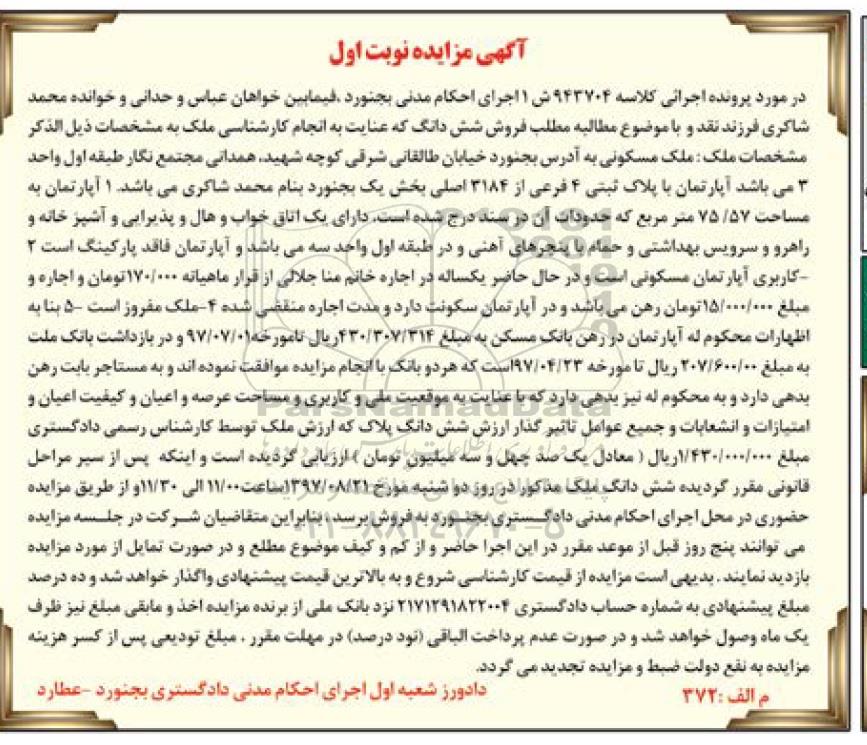 آگهی مزایده نوبت اول
در مورد پرونده اجرائی کلاسه ۹۴۳۷۰۴ ش ۱ اجرای احکام مدنی بجنورد ،فیمابین خواهان عباس و حدانی و خوانده محمد
شاکری فرزند نقد و با موضوع مطالبه مطلب فروش شش دانگ که عنایت به انجام کارشناسی ملک به مشخصات ذیل الذکر
مشخصات ملک : ملک مسکونی به آدرس بجنورد خیابان طالقانی شرقی کوچه شهید، همدانی مجتمع نگار طبقه اول واحد
۳ می باشد آپارتمان با پلاک ثبتی ۴ فرعی از ۳۱۸۴ اصلی بخش یک بجنورد بنام محمد شاکری می باشد. ۱ آپارتمان به
مساحت ۷۵/۵۷ متر مربع که حدودات آن در سند درج شده است، دارای یک اتاق خواب و هال و پذیرایی و آشپز خانه و
راهرو و سرویس بهداشتی و حمام با پنجرهای آهنی و در طبقه اول واحد سه می باشد و آپارتمان فاقد پارکینگ است ۲
-کاربری آپارتمان مسکونی است و در حال حاضر یکساله در اجاره خانم منا جلالی از قرار ماهیانه ۱۷۰/۰۰۰تومان و اجاره و
مبلغ ۱۵/۰۰۰/۰۰۰تومان رهن می باشد و در آپارتمان سکونت دارد و مدت اجاره منقضی شده ۴-ملک مفروز است ۵- بنا به
اظهارات محکوم له آپارتمان در رهن بانک مسکن به مبلغ ۴۳۰/۳۰۷/۳۱۴ریال تامورخه۹۷/۰۷/۰۱ و در بازداشت بانک ملت
به مبلغ ۲۰۷/۶۰۰/۰۰ ریال تا مورخه ۹۷/۰۴/۲۳است که هر دو بانک با انجام مزایده موافقت نموده اند و به مستاجر بابت رهن
بدهی دارد و به محکوم له نیز بدهی دارد که با عنایت به موقعیت ملی و کاربری و مساحت عرصه و اعیان و کیفیت اعیان و
امتیازات و انشعابات و جمیع عوامل تاثیر گذار ارزش شش دانک پلاک که ارزش ملک توسط کارشناس رسمی دادگستری
مبلغ ۱/۴۳۰/۰۰۰/۰۰۰ریال ( معادل یک صد چهل و سه میلیون تومان ) ارزیابی گردیده است و اینکه پس از سیر مراحل
قانونی مقرر گردیده شش دانگ ملک مذکور در روز دو شنبه مورخ ۱۳۹۷/۰۸/۲۱ساعت۱۱/۰۰ الی ۱۱/۳۰و از طریق مزایده
حضوری در محل اجرای احکام مدنی دادگستری بجنورد به فروش برسد ، بنابراین متقاضیان شرکت در جلسه مزایده
می توانند پنج روز قبل از موعد مقرر در این اجرا حاضر و از کم و کیف موضوع مطلع و در صورت تمایل از مورد مزایده
بازدید نمایند . بدیهی است مزایده از قیمت کارشناسی شروع و به بالاترین قیمت پیشنهادی واگذار خواهد شد و ده درصد
مبلغ پیشنهادی به شماره حساب دادگستری ۲۱۷۱۲۹۱۸۲۲۰۰۴ نزد بانک ملی از برنده مزایده اخذ و مابقی مبلغ نیز ظرف
یک ماه وصول خواهد شد و در صورت عدم پرداخت الباقی (نود درصد) در مهلت مقرر ، مبلغ تودیعی پس از کسر هزینه
مزایده به نفع دولت ضبط و مزایده تجدید می گردد.
دادورز شعبه اول اجرای احکام مدنی دادگستری بجنورد -عطارد
م الف :۳۷۲
ParsNamadData
۰۲۱-۸۸۳۴۹۶۷۰-۵